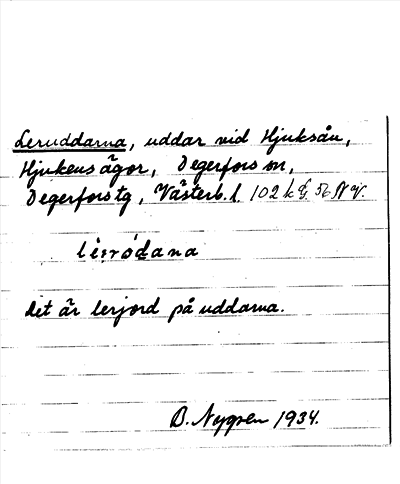 Leruddarna, uddar vid Hjuksån,
Hjukens ägor, Degerfors sn,
Degerfors tg, Västerb. l. 102 k
lèrródana
Det är lerjord på uddarna.
B. Nygren 1934.